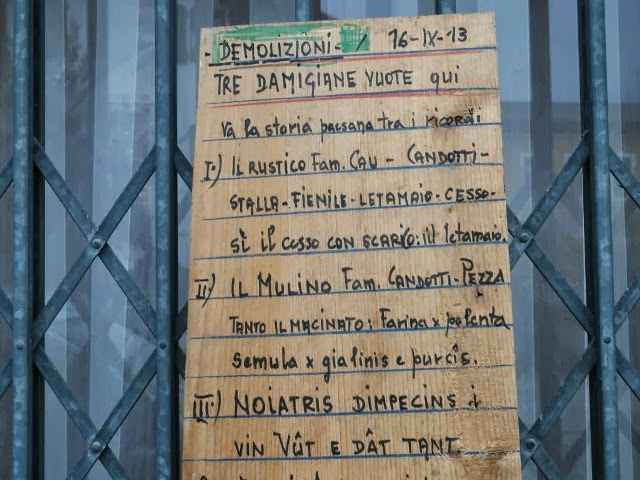 DEMOLIZIONI- / 16-IX-13
TRE DAMIGIANE VUOTE qui
Va la storia paesana tra i ricordi
I.) IL RUSTICO FAM. CAU - CANDOTTI-
STALLA-FIENILE-LETAMAIO-CESSO-
SÌ IL CESSO CON SCARICO: il letamaio.
II.) IL MULINO FAM. CANDOTTI-PEZZA
TANTO IL MACINATO: Farina x polenta
Semula x gialinis e purcîs.
III.) NOIATRIS DIMPECINS i
VIN VÛT E DÂT TANT.